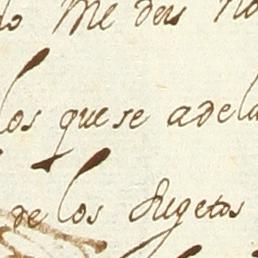 lo me deis no
los que se adela
de los Sugetos